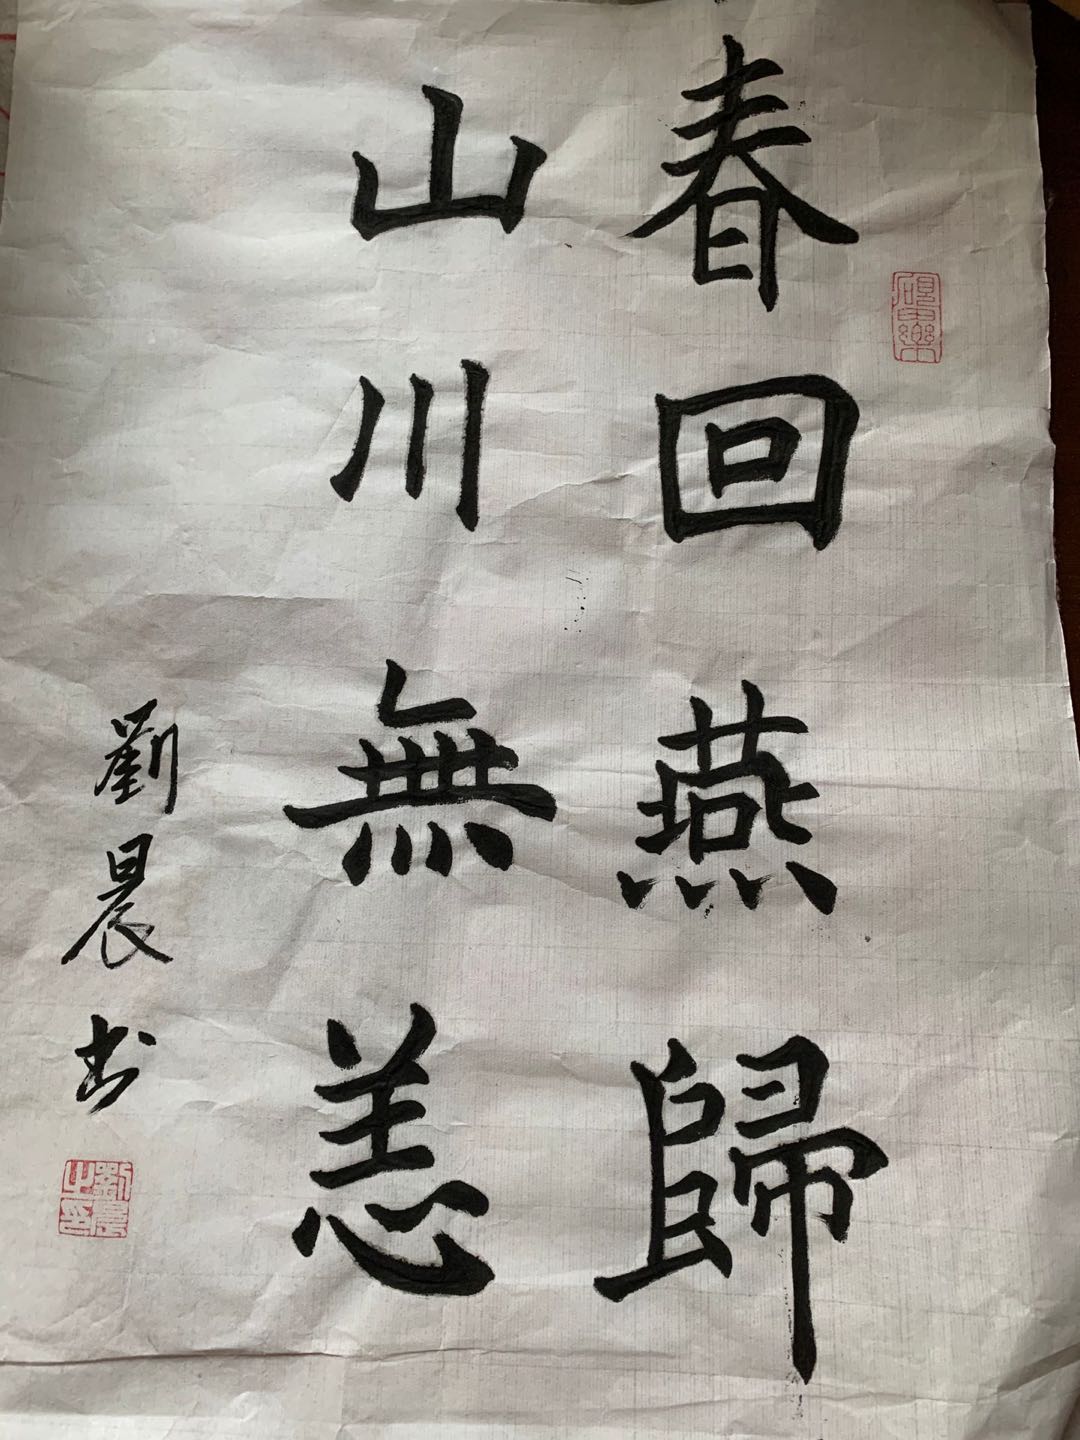 春回燕歸
山川無恙
劉晨书
劉晨之印